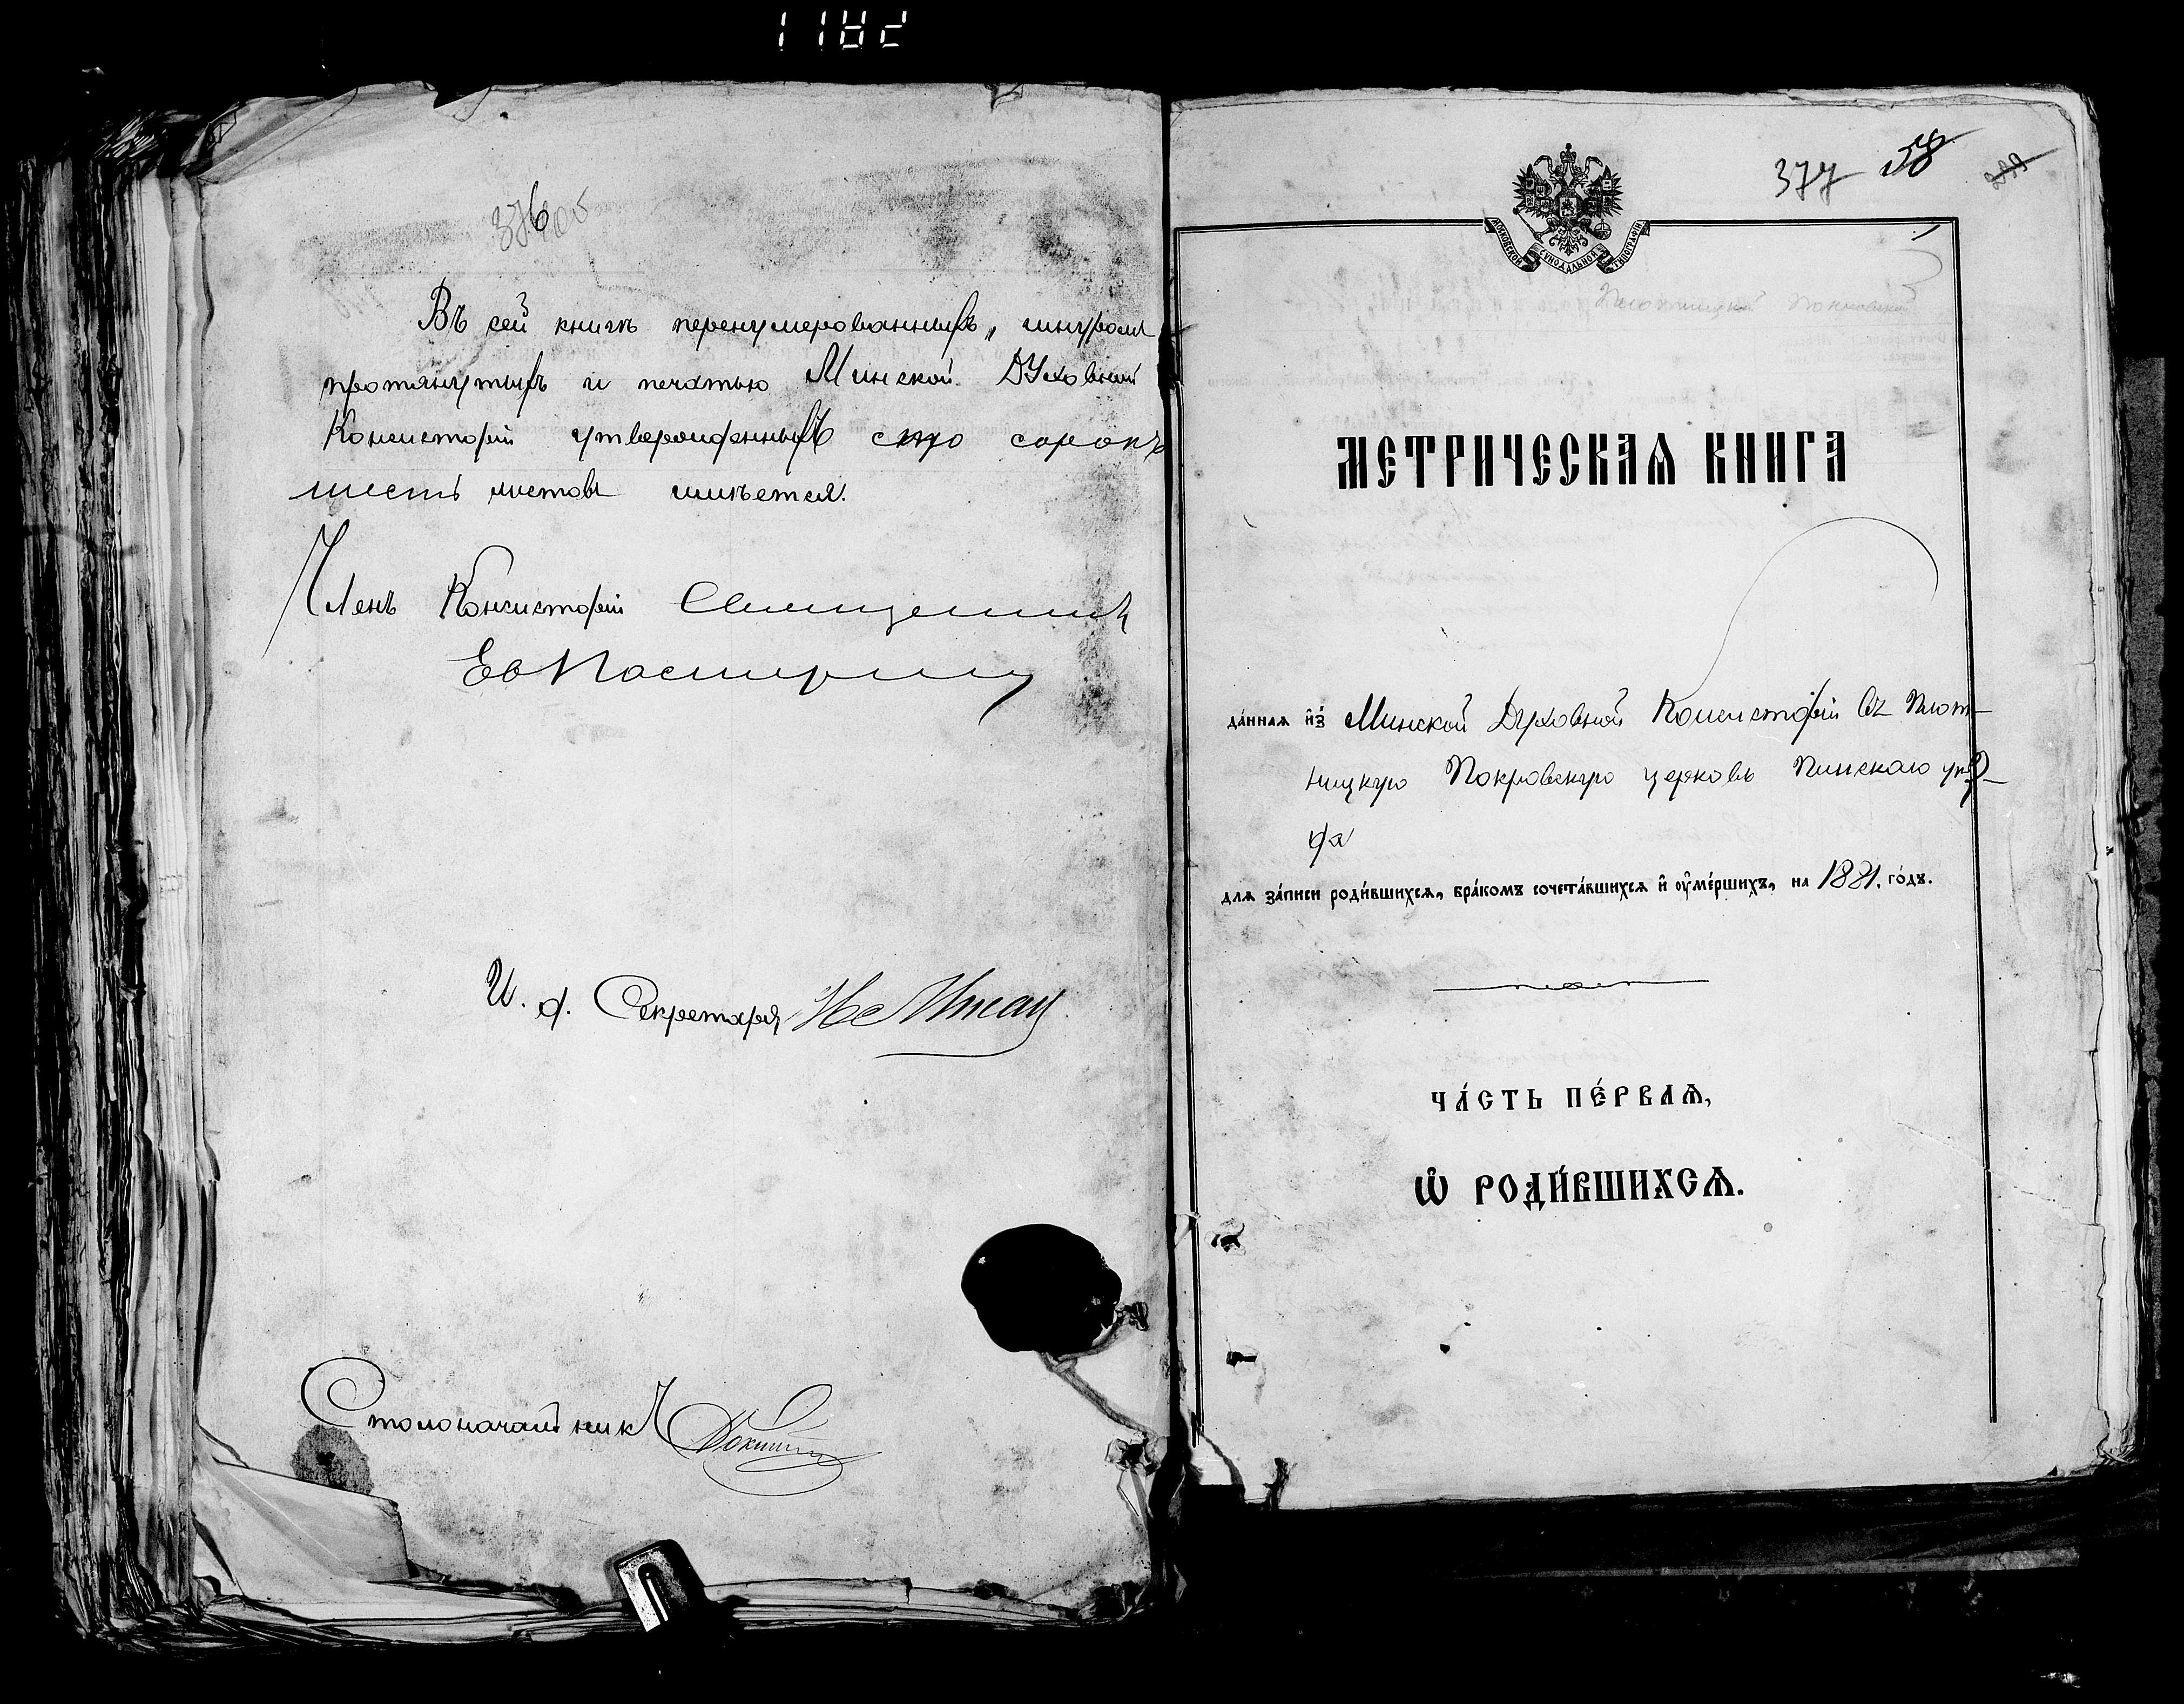 1182
376
Въ сей книгѣ перенумерованныхъ, шнуромъ
протянутыхъ и печатью Минской Духовной
Консисторіи утвержденныхъ сто сорокъ
шесть листовъ имѣется.
Членъ Консисторіи Священникъ
И. д. Секретаря
Столоначальникъ
377 58
МОСКОВСКОЙ СѴНОДАЛЬНОЙ ТИПОГРАФІИ
МЕТРИЧЕСКАѦ КНИГА
да́ннаѧ и҆з̾ Минской Духовной Консисторіи въ Плот-
ницкую Покровскую церковь Пинскаго уѣз-
да
для за́писи роди́вшихсѧ, бра́комъ сочета́вшихсѧ и҆ ᲂу҆ме́ршихъ, на 1881. го́дъ.
ЧА́СТЬ ПЕ́РВАѦ,
Ѡ҆ РОДИ́ВШИХСѦ.